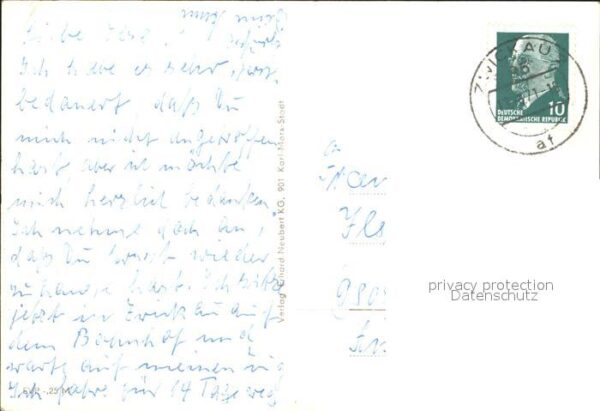 Ich habe es sehr
bedauert daß Du
mich nicht angetroffen
hast aber ich möchte
mich herzlich bedanken
Ich nehme doch an,
daß Du sonst wieder
zu hause hast. Ich sitze
jetzt in Zwickau auf
dem Bahnhof und
warte auf meinen Zug
Ich fahre für 14 Tage weg
Verlag Erhard Neubert KG, 901 Karl-Marx-Stadt
ZWICKAU
af
10
DEUTSCHE
DEMOKRATISCHE REPUBLIK
Frau
Ilse
privacy protection
Datenschutz